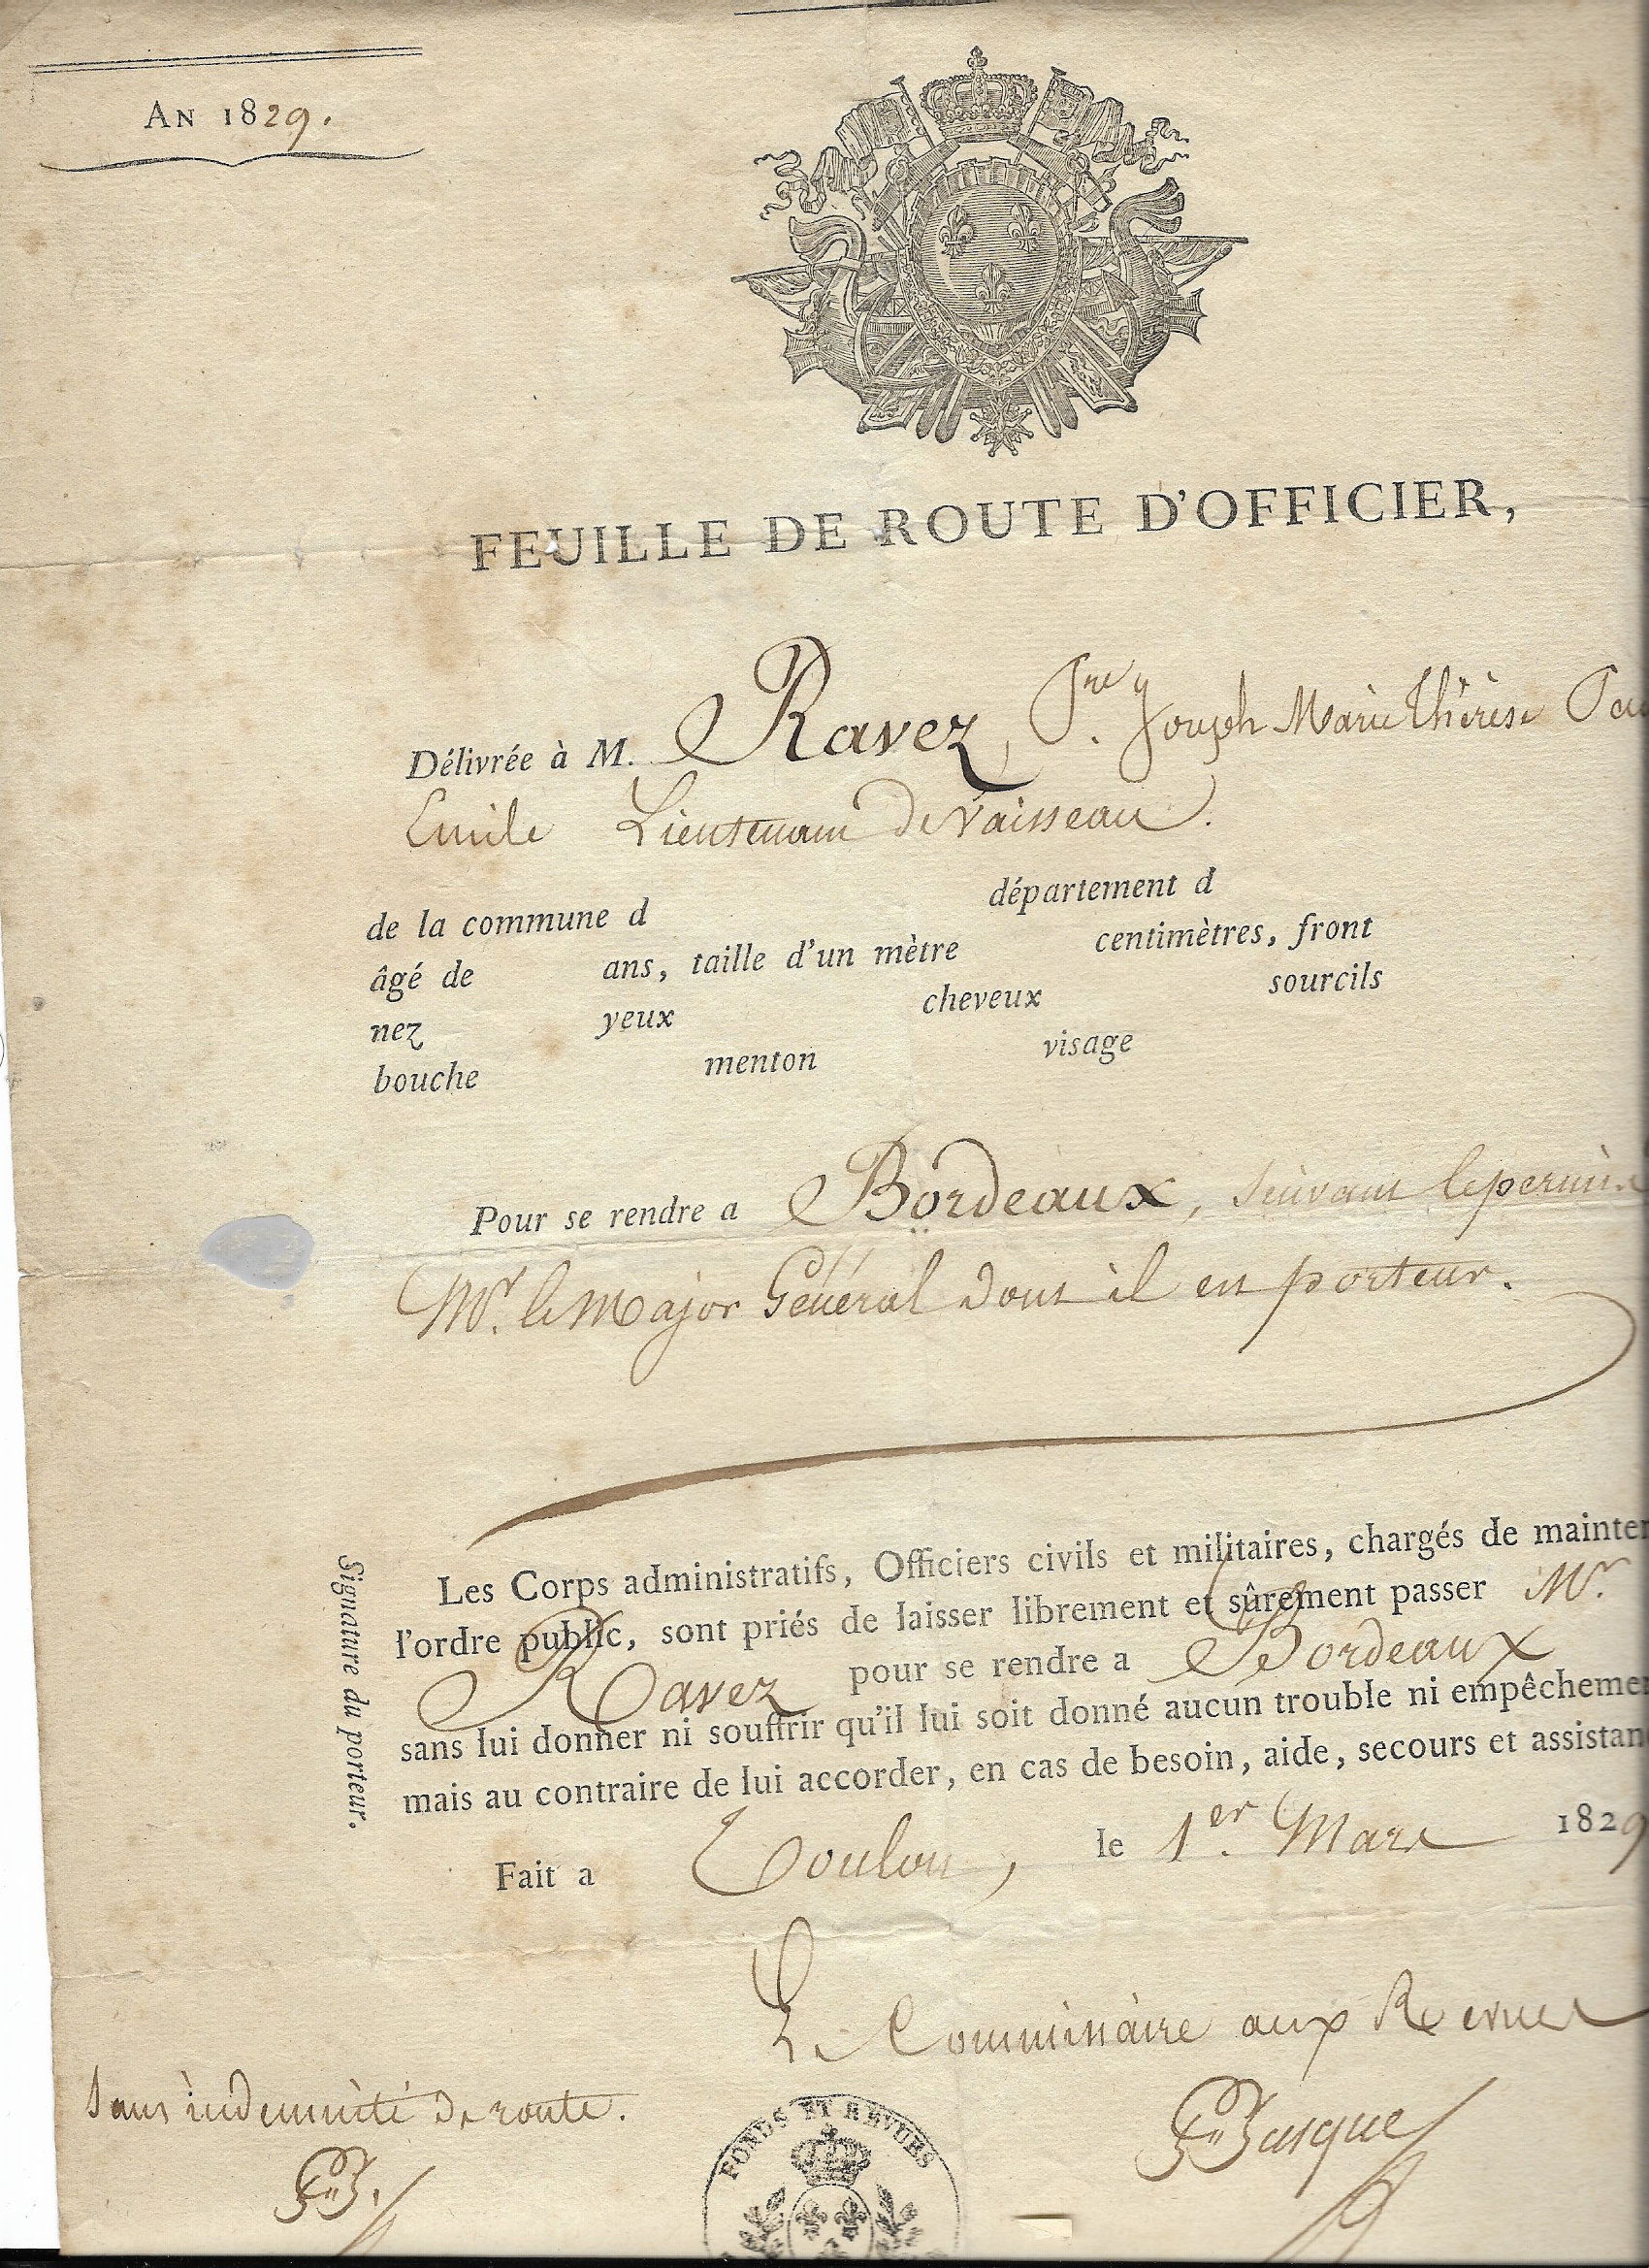 AN 1829.
FEUILLE DE ROUTE D'OFFICIER,
Délivrée à M. Ravez, Pre. Joseph Marie Thérèse
Emile Lieutenant de Vaisseau.
de la commune d département d
âgé de ans, taille d'un mètre centimètres, front
nez yeux cheveux sourcils
bouche menton visage
Pour se rendre a Bordeaux, suivant le permis
Mr. le Major Général dont il est porteur.
Signature du porteur.
Les Corps administratifs, Officiers civils et militaires, chargés de mainten
l'ordre public, sont priés de laisser librement et sûrement passer Mr.
Ravez pour se rendre a Bordeaux
sans lui donner ni souffrir qu'il lui soit donné aucun trouble ni empêchemen
mais au contraire de lui accorder, en cas de besoin, aide, secours et assistan
Fait a Toulon, le 1er. Mars 1829
Le Commissaire aux Revues
Sans indemnité de route.
FONDS ET REVUES